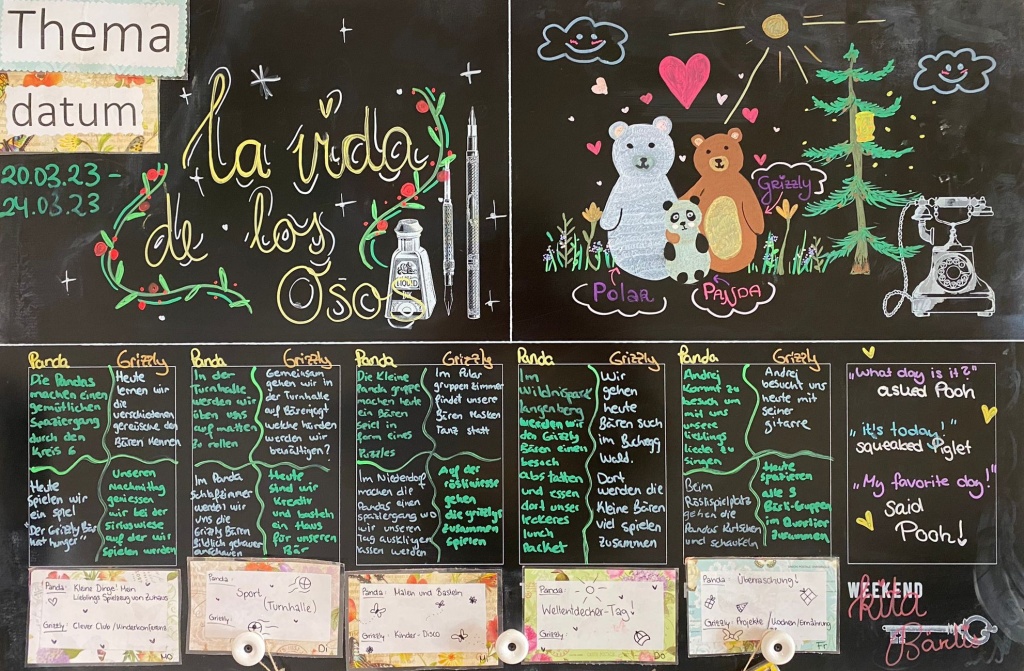 Thema
datum
20.03.23 -
24.03.23
la vida
de los
Oso
Grizzly
Polar
PANDA
Panda Grizzly
Die Pandas
machen einen
gemütlichen
Spaziergang
durch den
Kreis 6
Heute
lernen wir
die
verschiedenen
gereusche der
Bären Kennen
Heute
Spielen wir
ein Spiel
"Der Grizzly Bär
hat hunger"
Unseren
Nachmittag
geniessen
wir bei der
Sirius wiese
auf der wir
spielen werden
Panda Grizzly
In der
Turnhalle
werden wir
üben uns
auf matten
zu rollen
Gemeinsam
gehen wir in
der Turnhalle
auf Bärenjagt
welche hürden
werden wir
bewältigen?
Im Panda
Schlafzimmer
werden wir
uns die
Grizzly Bären
Bildlich genauer
anschauen
Heute
sind wir
kreativ
und basteln
ein Haus
für unseren
Bär
Panda Grizzly
Die Kleine
Panda gruppe
machen heute
ein Bären
Spiel in
form eines
Puzzles
Im Polar
gruppen zimmer
findet unsere
Bären Masken
Tanz statt
Im Niederdorf
machen die
Pandas einen
spaziergang wo
wir unseren
Tag ausklingen
lassen werden
Auf der
röslwiese
gehen
die grizzlys
zusammen
spielen
Panda Grizzly
Im
Wildnispark
langenberg
werden wir
den Grizzly
Bären einen
besuch
abstadten
und essen
dort unser
leckeres
lunch
Packet
Wir
gehen
heute
Bären Such
im Buchegg
Wald.
Dort
werden die
Kleine Bären
viel spielen
Zusammen
Panda Grizzly
Andrej
Kommt zu
besuch um
mit uns
unsere
lieblings
lieder zu
singen
Andrej
besucht uns
heute mit
seiner
gitarre
Beim
Röslispielplatz
gehen die
Pandas Rutschen
und schaukeln
Heute
spazieren
alle 3
Bärli-Gruppen
im Quartier
zusammen
"What day is it?"
asked Pooh
"it's today!"
squeaked Piglet
"My favorite day!"
said
Pooh!
Panda: Kleine Dinge! Mein
Lieblings Spielzeug von Zuhaus
Grizzly: Clever Club / Kinderkonferenz
Mo
Panda:
Sport
(Turnhalle)
Grizzly:
Di
Panda: Malen und Basteln
Grizzly: Kinder-Disco
Mi
Panda:
Weltentdecker-Tag!
Grizzly:
Do
Panda: Überraschung!
Grizzly: Projekte / Kochen/Ernährung
Fr
WEEKEND
kita
Bärli